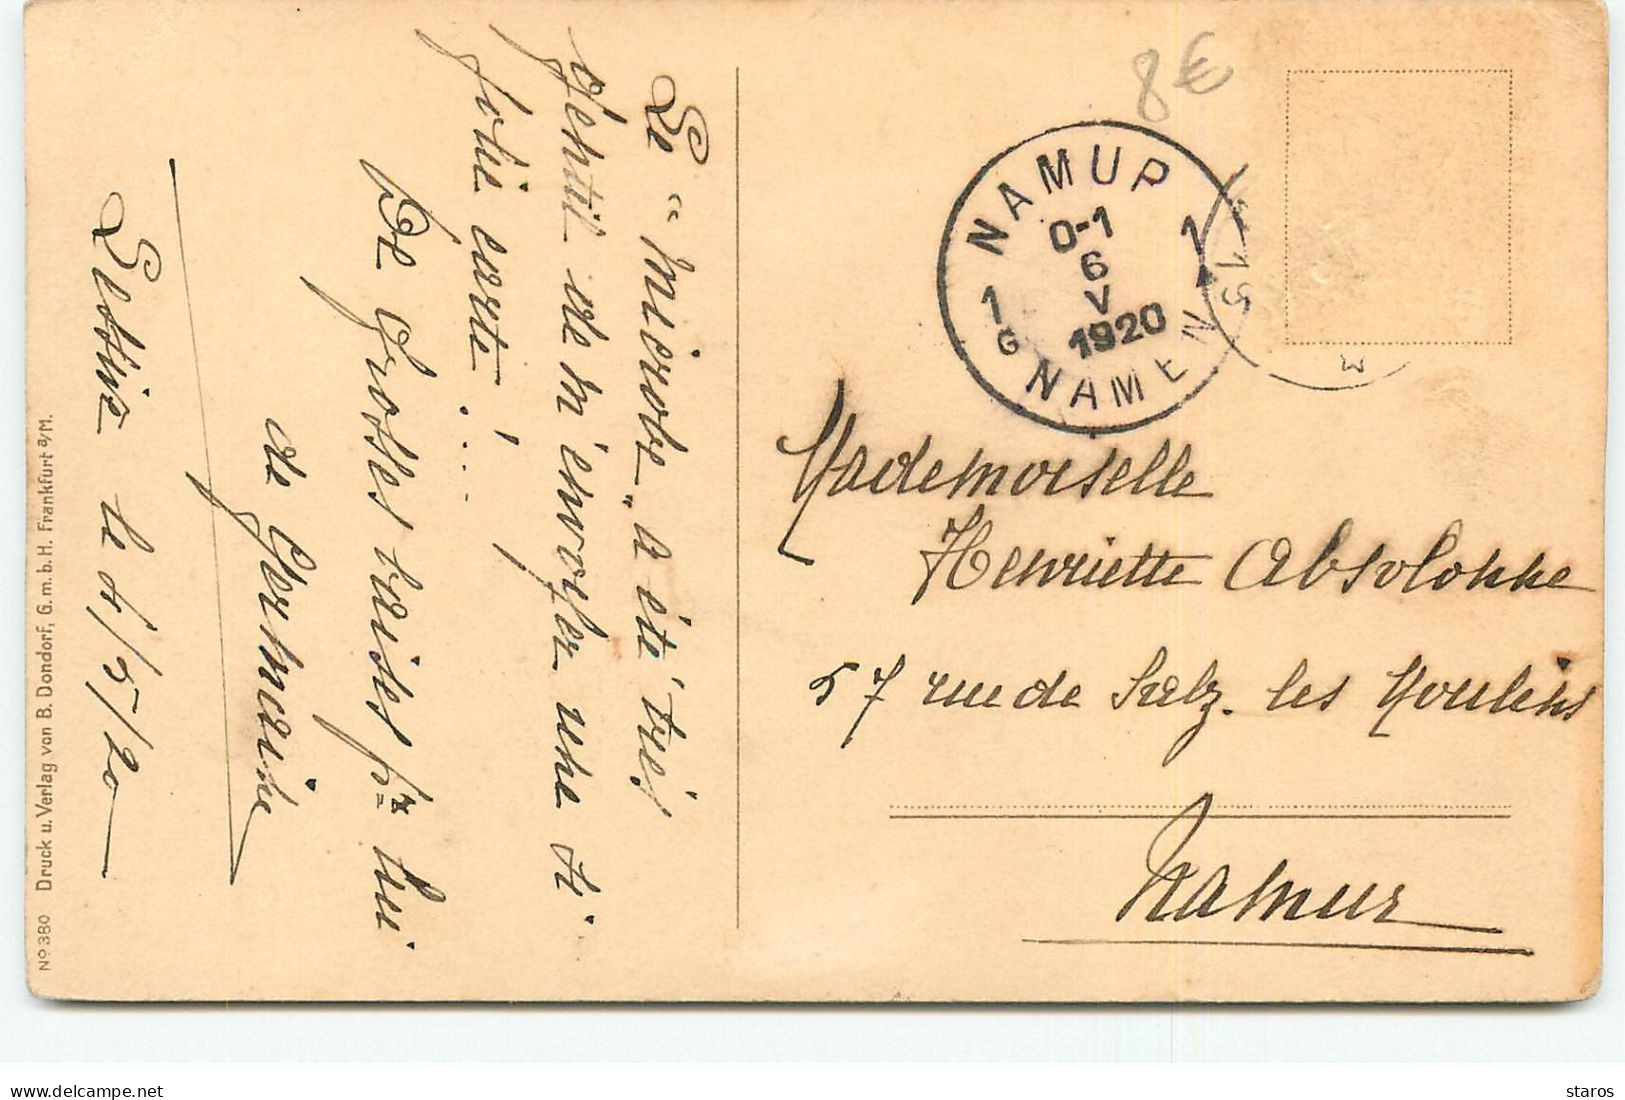 Le "microbe" a été très
gentil de m'envoyer une si
jolie carte! ...
De grosses baises pr lui
de Germaine
Lessines le 5/5/20
No 380 Druck u. Verlag von B. Dondorf, G. m. b. H. Frankfurt a/M.
8€
NAMUR
1 0-1 1
6
V
1920
G
NAMEN
Mademoiselle
Henriette Absolonne
57 rue de Salz. les Moulins
Namur
delcampe.net
staros